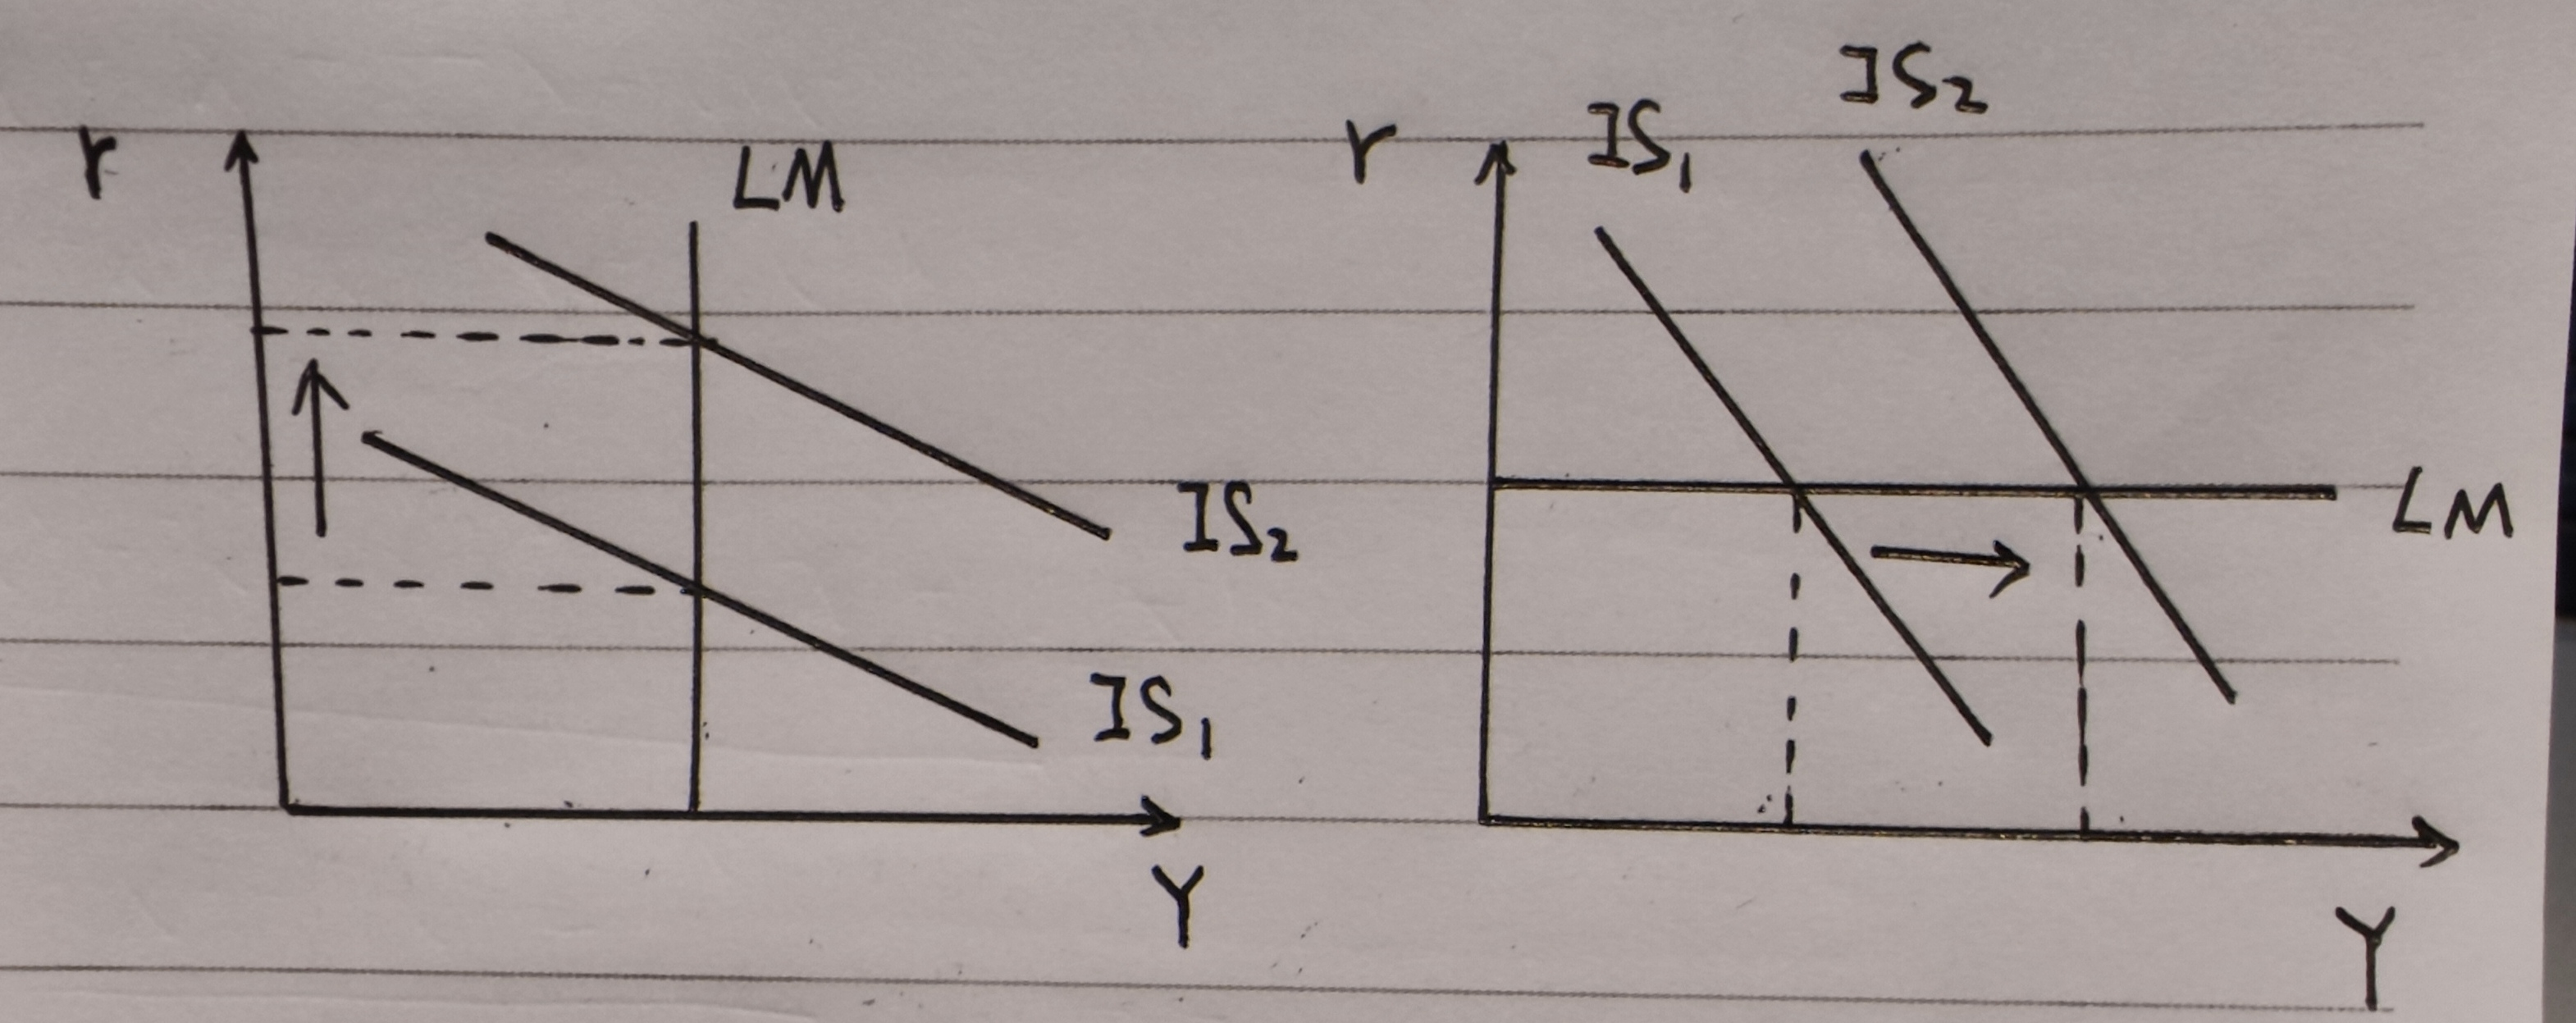 r
LM
IS₂
IS₁
Y
r
IS₁
IS₂
LM
Y